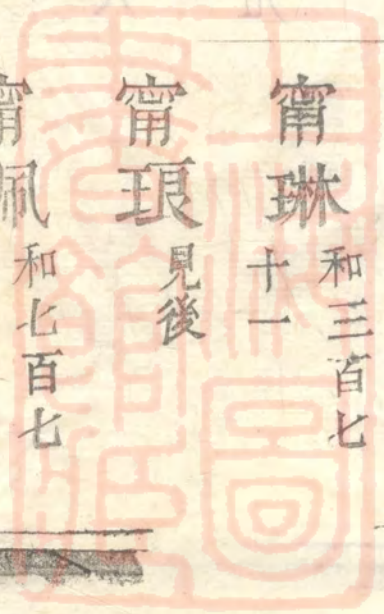 甯琳 和三百七
十一
甯琅 見後
甯佩 和七百七